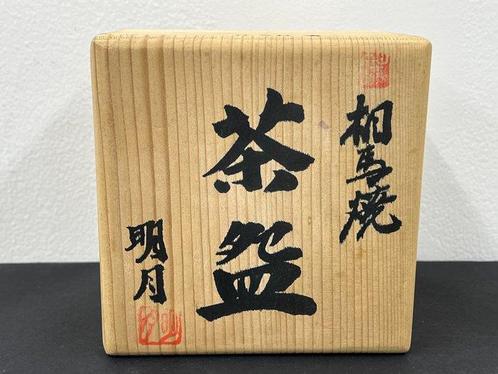 相馬焼
茶盌
明月